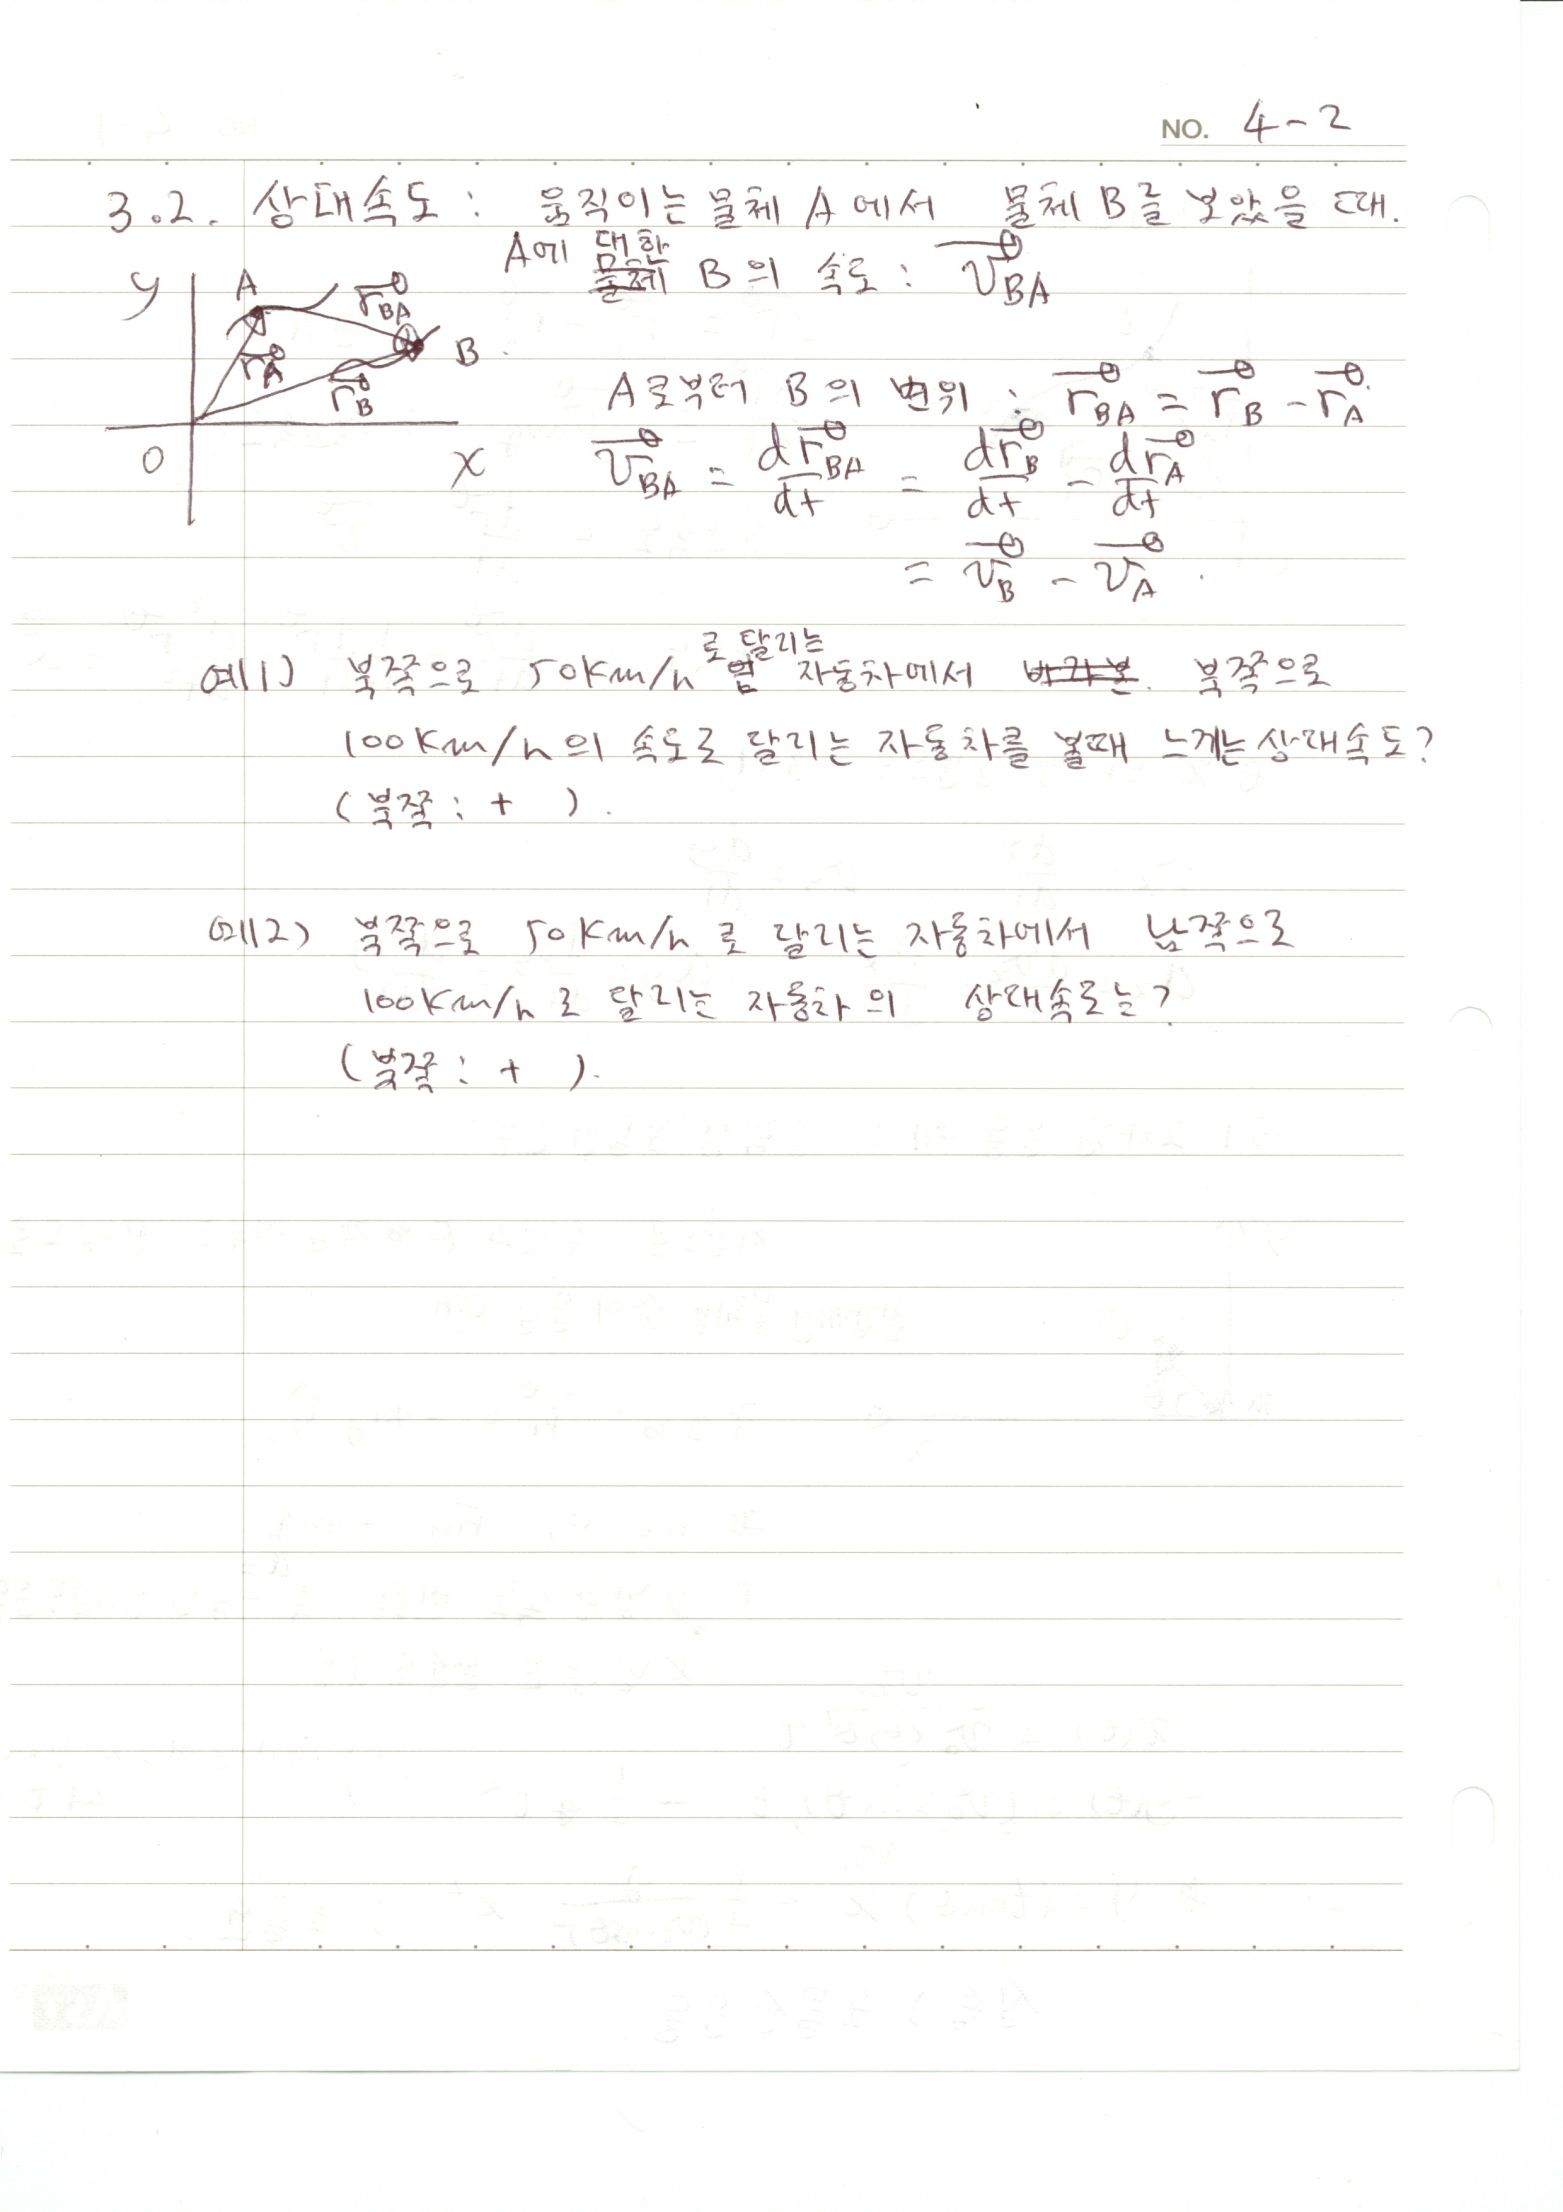 NO. 4-2
3.2. 상대속도 : 움직이는 물체 A에서 물체 B를 보았을 때.
A에 대한 B의 속도 : v⃗_BA
y A r⃗_BA
B
r⃗_A r⃗_B
A로부터 B의 변위 : r⃗_BA = r⃗_B - r⃗_A
O x
v⃗_BA = dr⃗_BA/dt = dr⃗_B/dt - dr⃗_A/dt
= v⃗_B - v⃗_A .
예1) 북쪽으로 50km/h로 달리는 자동차에서 북쪽으로
100km/h의 속도로 달리는 자동차를 볼때 느끼는 상대속도?
(북쪽 : + ).
예2) 북쪽으로 50km/h로 달리는 자동차에서 남쪽으로
100km/h로 달리는 자동차의 상대속도는?
(북쪽 : + ).